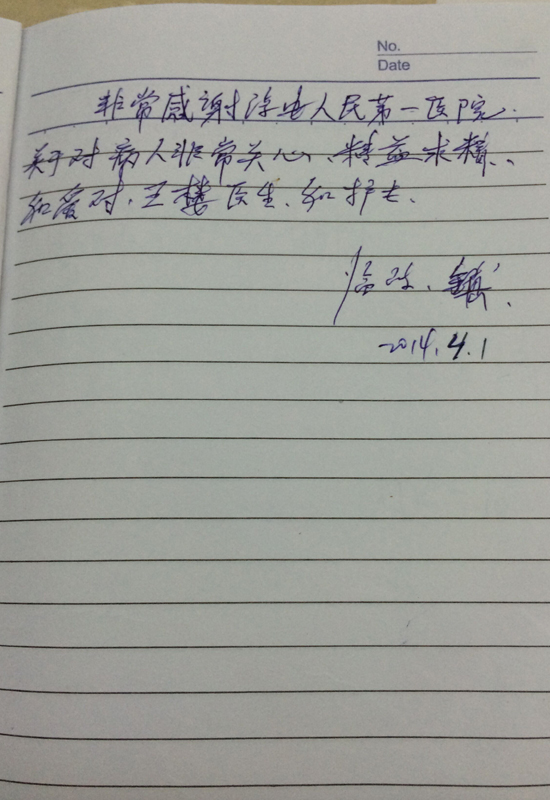 No.
Date
非常感谢淳安人民第一医院.
关于对病人非常关心、精益求精、
和爱对. 王楼医生、和护士.
临岐、镇
2014.4.1